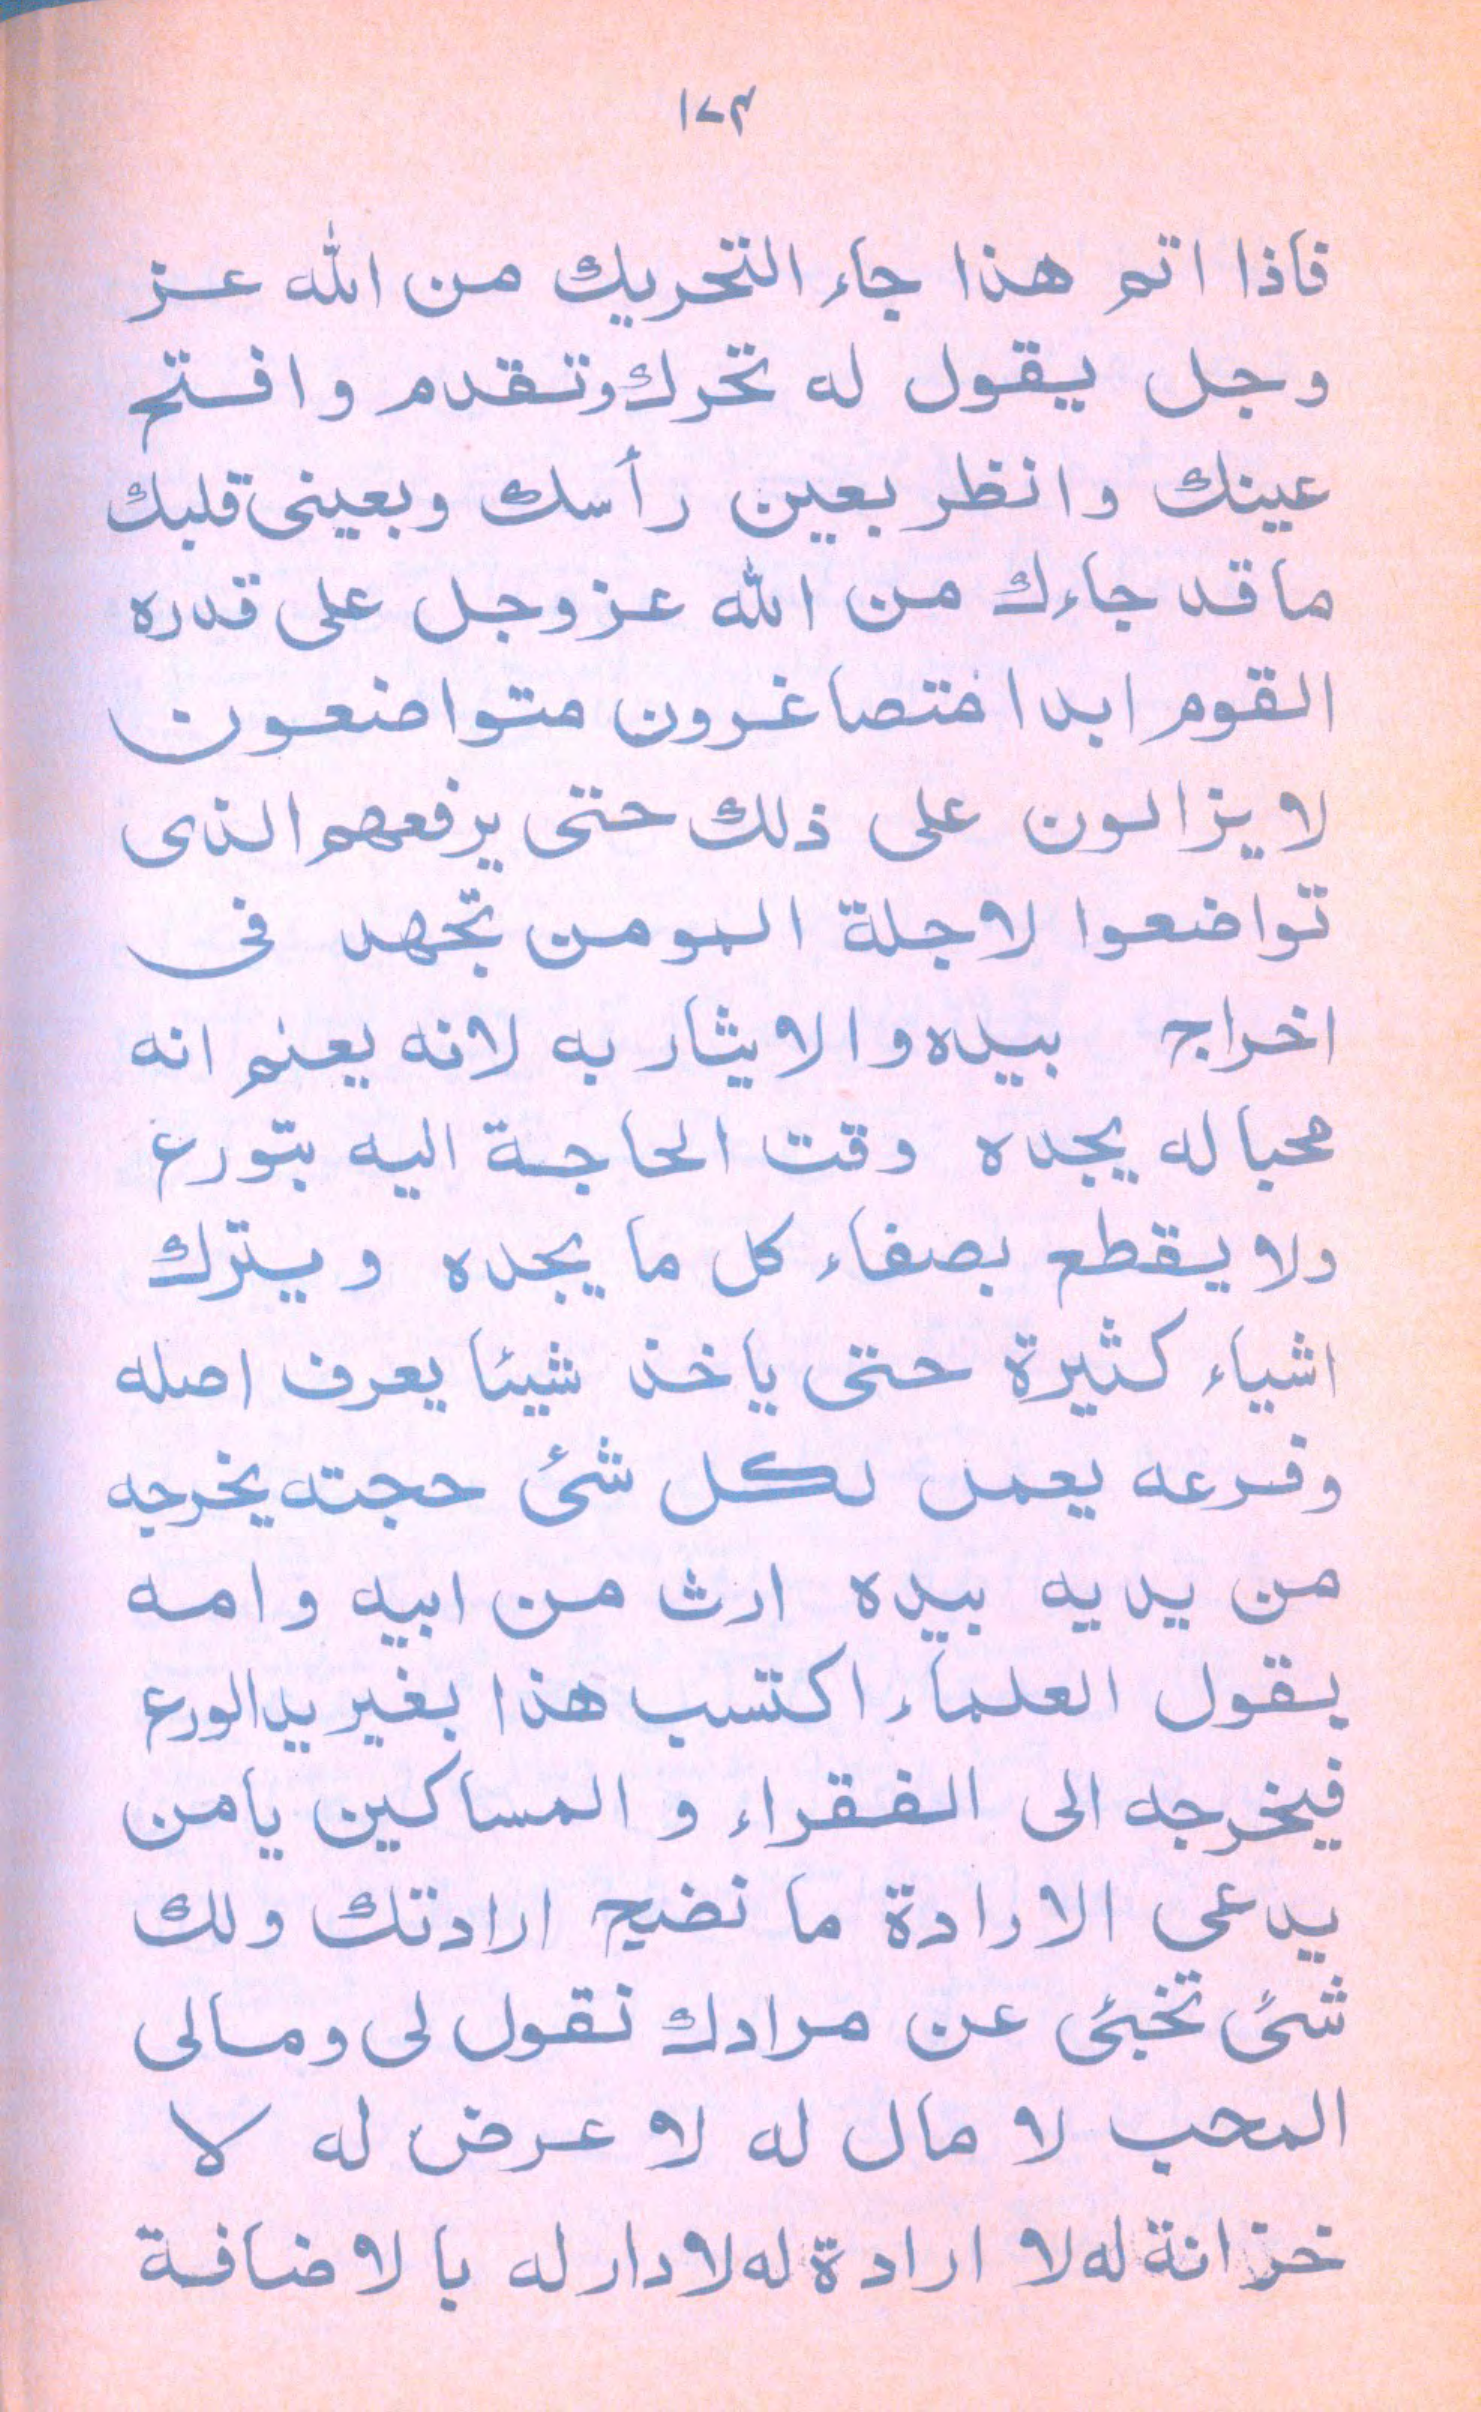 ١٧٣
فاذا اتم هذا جاء التحريك من الله عز
وجل يقول له تحرك وتقدم وافتح
عينك وانظر بعين رأسك وبعينى قلبك
ما قد جاءك من الله عزوجل على قدره
القوم ابدا متصاغرون متواضعون
لا يزالون على ذلك حتى يرفعهم الذى
تواضعوا لاجلة المومن تجهد فى
اخراج بيده والايثار به لانه يعلم انه
محباله يجده وقت الحاجة اليه بتورع
ولا يقطع بصفاء كل ما يجده ويترك
اشياء كثيرة حتى ياخذ شيئا يعرف اصله
وفرعه يعمل لكل شئ حجته يخرجه
من يديه بيده ارث من ابيه وامه
يقول العلماء اكتسب هذا بغير يد الورع
فيخرجه الى الفقراء و المساكين يامن
يدعى الارادة ما نضيح ارادتك ولك
شئ تخبئ عن مرادك نقول لى ومالى
المحب لا مال له لا عرض له لا
خزانة له لا ارادة له لا دار له بالاضافة